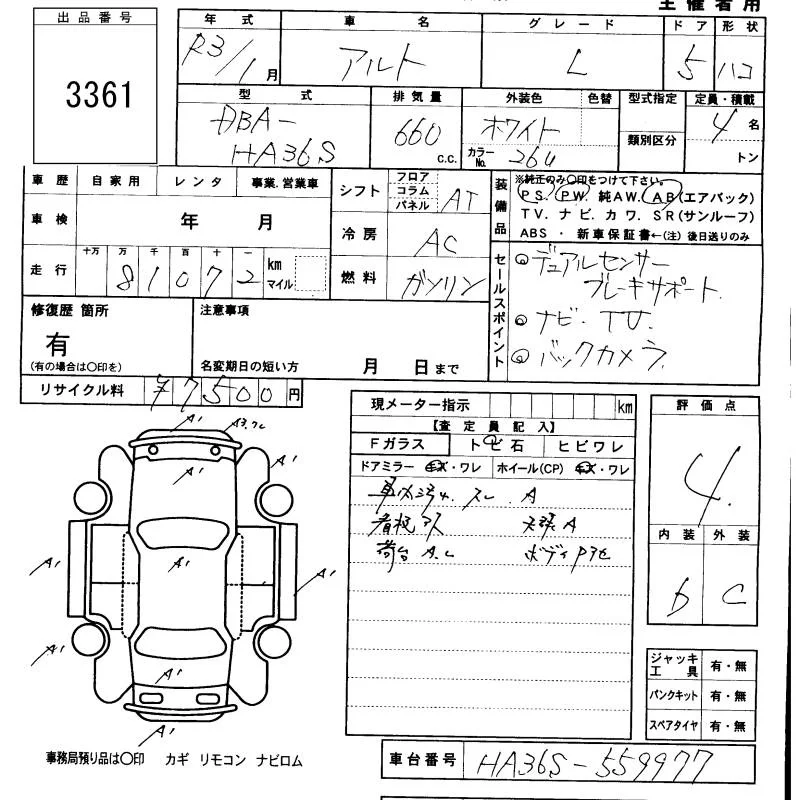 主催者用
出品番号
3361
年式 車名 グレード ドア 形状
R3/1月 アルト L 5 ハコ
型式 排気量 外装色 色替 型式指定 定員・積載
DBA-
HA36S
660 C.C.
ホワイト
カラーNo. 26U
類別区分
4名
トン
車歴 自家用 レンタ 事業.営業車
車検 年 月
走行 十万 万 千 百 十 一 km マイル
81072
シフト フロア コラム パネル AT
冷房 AC
燃料 ガソリン
装備品
※純正のみ○印をつけて下さい。
PS. PW. 純AW. AB(エアバック)
TV. ナビ. カワ. SR(サンルーフ)
ABS ・ 新車保証書←(注) 後日送りのみ
セールスポイント
◎デュアルセンサー
ブレーキサポート
◎ナビ・TV.
◎バックカメラ
修復歴 箇所
有
(有の場合は○印を)
注意事項
名変期日の短い方 月 日まで
リサイクル料 ¥7500円
現メーター指示 km
【査定員記入】
Fガラス トビ石 ヒビワレ
ドアミラー キズ・ワレ ホイール(CP) キズ・ワレ
スレ.A
A
荷台 A.C ボディ
評価点
4.
内装 外装
D C
A' A'
A' A'
A' A' A'
A' A' A'
A'
ジャッキ工具 有・無
パンクキット 有・無
スペアタイヤ 有・無
事務局預り品は○印 カギ リモコン ナビロム
車台番号 HA36S-559977